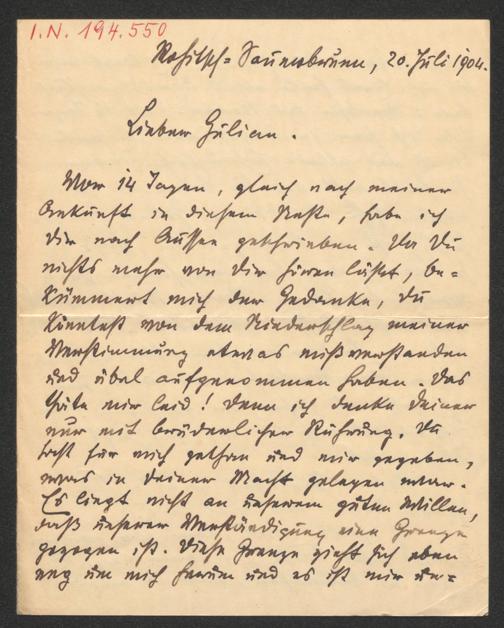 I.N. 194.550
Rohitsch-Sauerbrunn, 20. Juli 1904.
Lieber Gülian.
Vor 14 Tagen, gleich nach meiner
Ankunft in diesem Neste, habe ich
Dir nach Aussee geschrieben. Da Du
nichts mehr von Dir hören läßt, be-
kümmert mich der Gedanke, Du
könntest von dem Niederschlag meiner
Verstimmung etwas mißverstanden
und übel aufgenommen haben. Das
thäte mir leid! Denn ich denke Deiner
nur mit brüderlicher Rührung. Du
hast für mich gethan und mir gegeben,
was in Deiner Macht gelegen war.
Es liegt nicht an unserem guten Willen,
daß unserer Verständigung eine Grenze
gezogen ist. Diese Grenze zieht sich eben
eng um mich herum und es ist mir un-